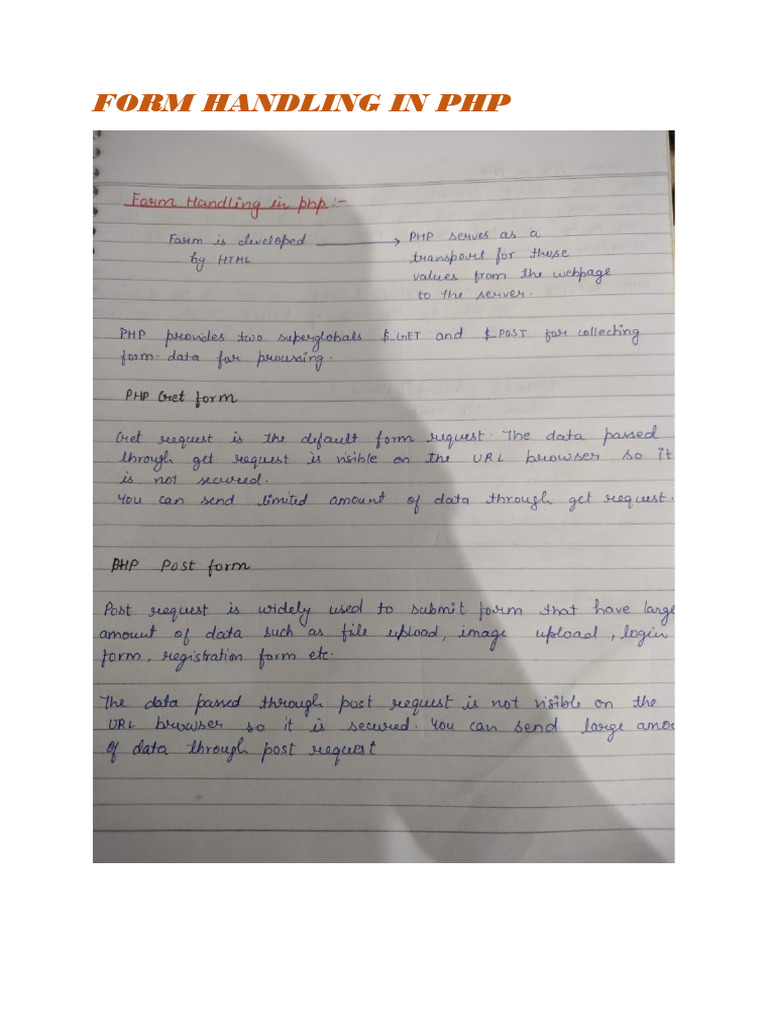 FORM HANDLING IN PHP
Form Handling in php :-
Form is developed → PHP serves as a
by HTML transport for those
values from the webpage
to the server.
PHP provides two superglobals $_GET and $_POST for collecting
form-data for processing.
PHP Get form
Get request is the default form request. The data passed
through get request is visible on the URL browser so it
is not secured.
You can send limited amount of data through get request.
PHP Post form
Post request is widely used to submit form that have large
amount of data such as file upload, image upload, login
form, registration form etc.
The data passed through post request is not visible on the
URL browser so it is secured. You can send large amou
of data through post request